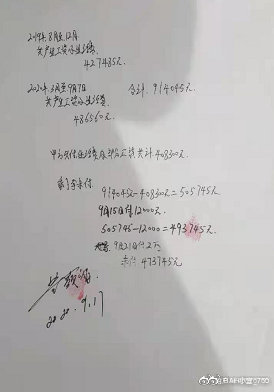 2019年8月至12月
共产生工资及生活费
427485元
2020年3月至9月7日
共产生工资及生活费 合计:914045元
486560元
甲方共付生活费及部分工资共计408300元.
剩下未付.
914045元-408300元=505745元
9月15日付12000元
505745-12000=493745元
9月21日付2万
未付:473745元
9.17